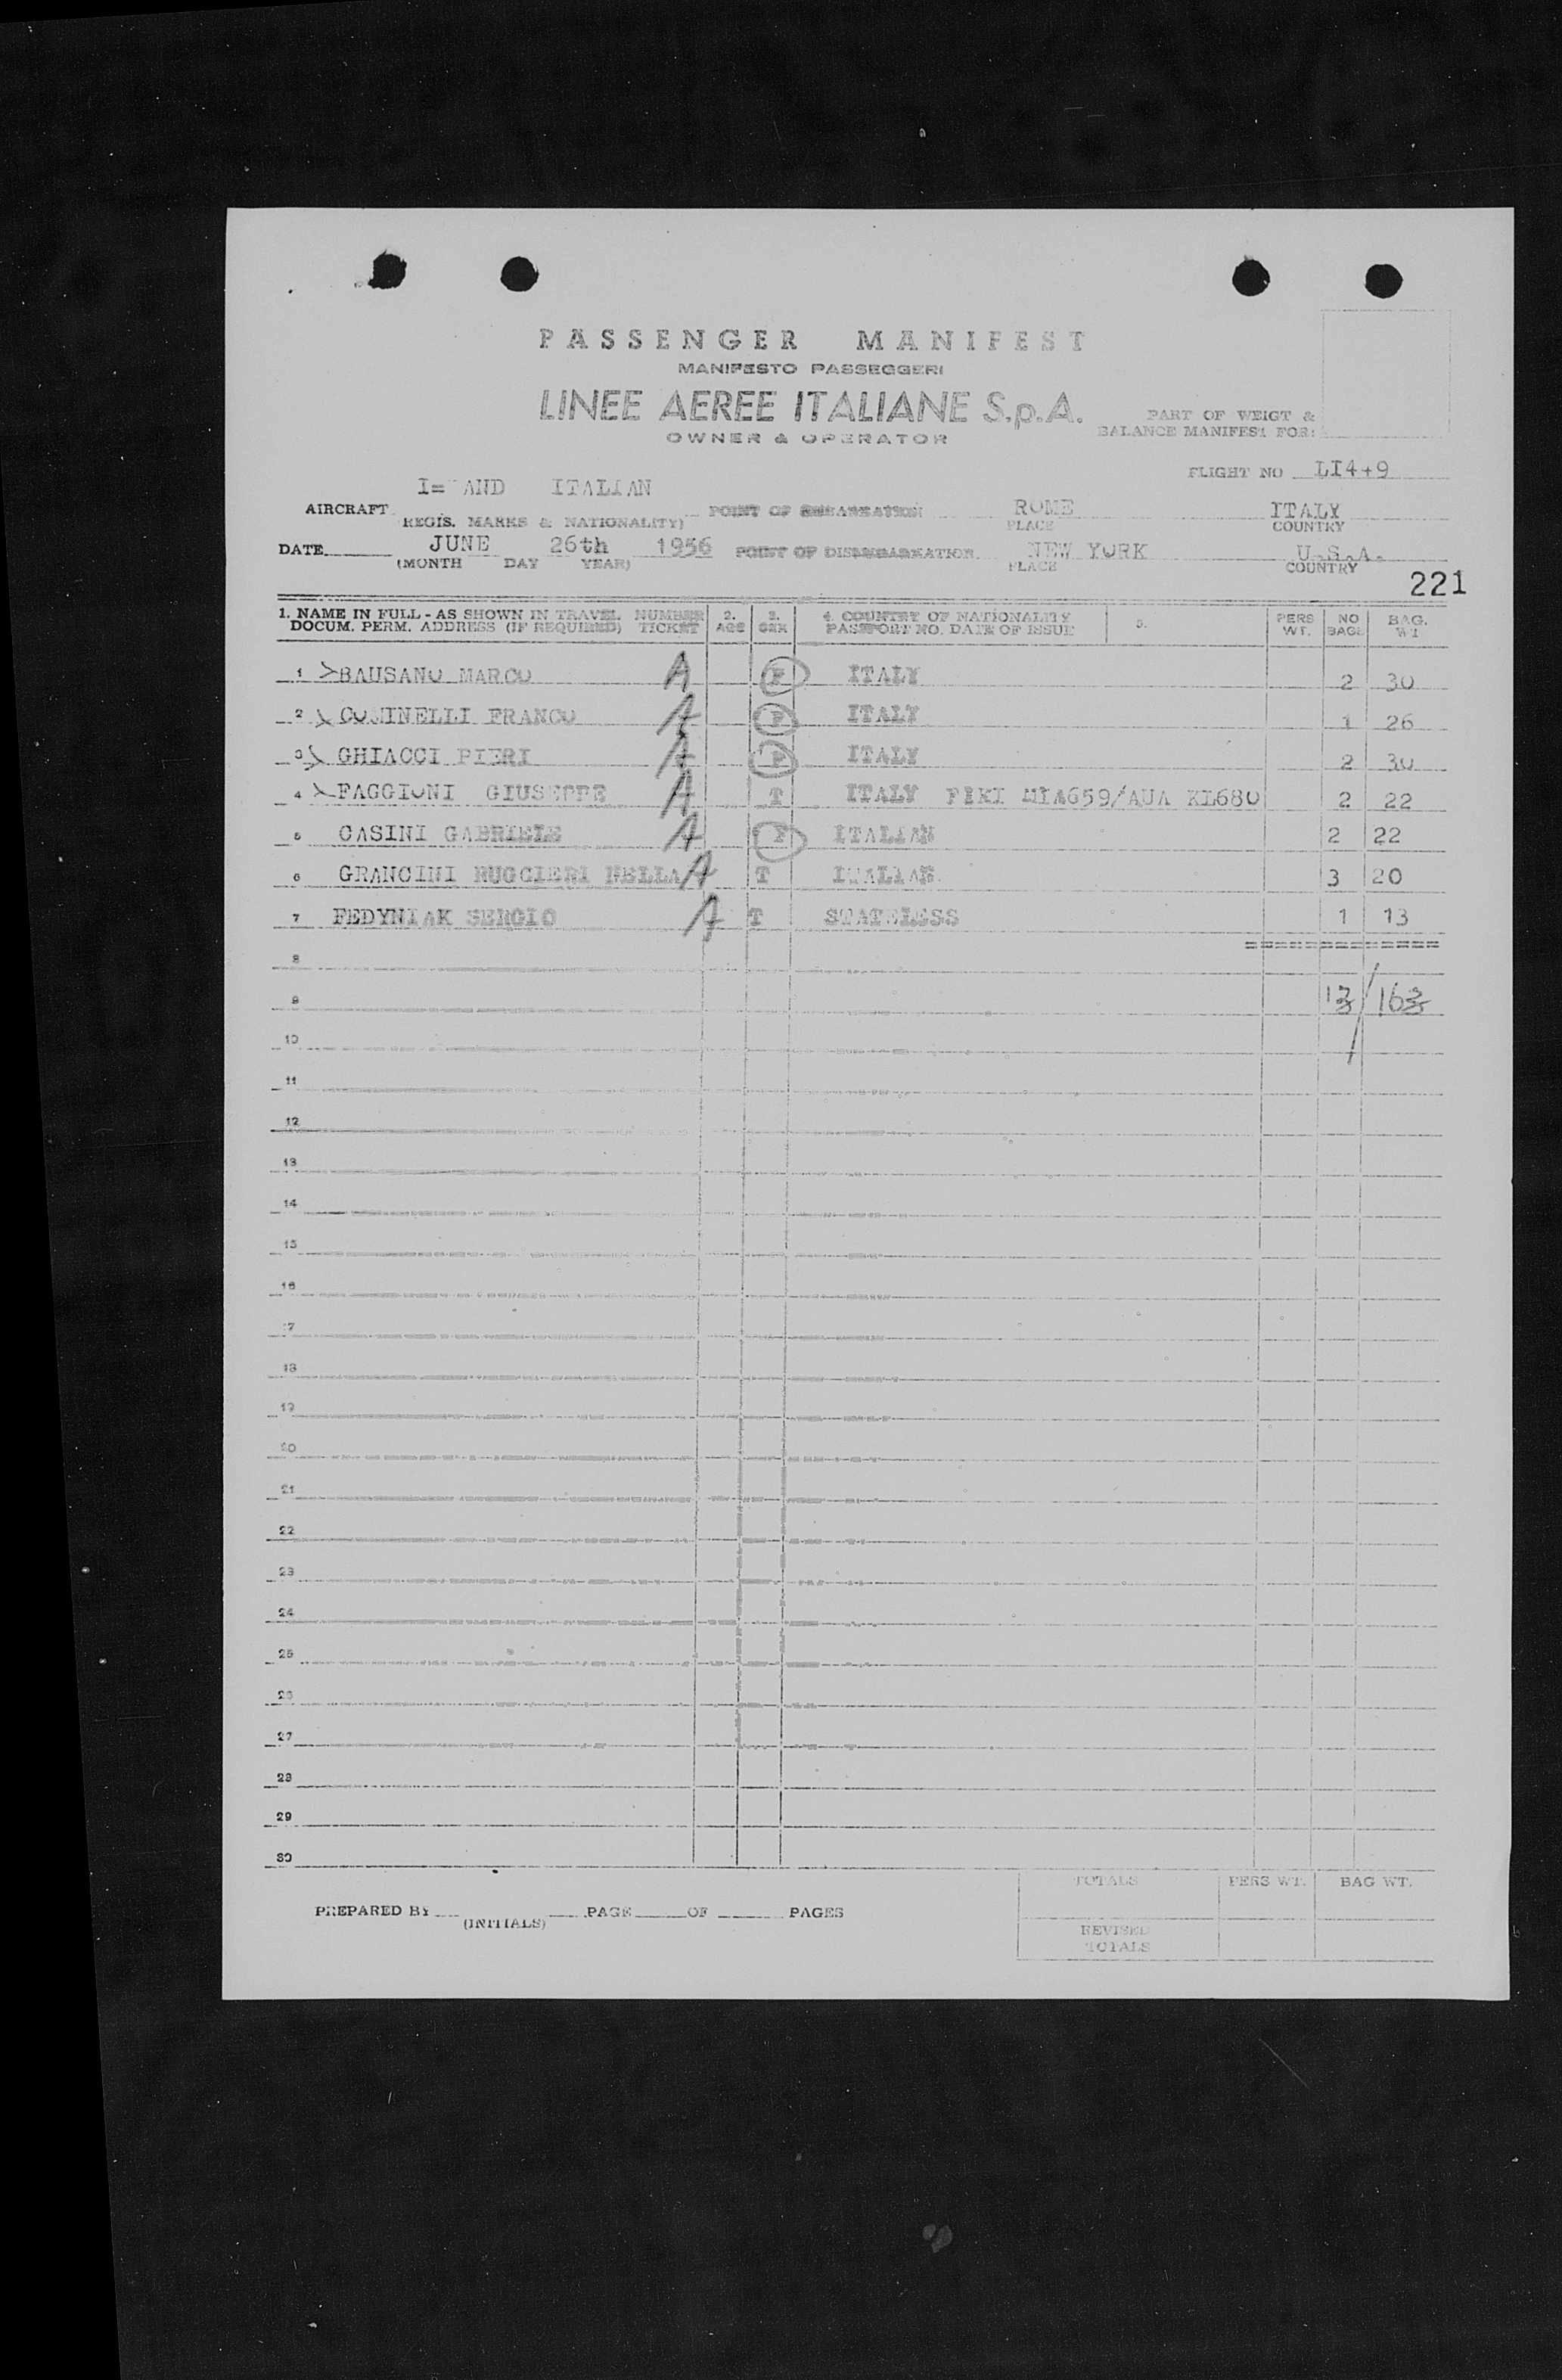 PASSENGER MANIFEST
MANIFESTO PASSEGGERI
LINEE AEREE ITALIANE S.p.A.
OWNER & OPERATOR
PART OF WEIGT &
BALANCE MANIFEST FOR:
FLIGHT NO LI4+9
I= AND ITALIAN
AIRCRAFT POINT OF EMBARKATION ROME ITALY
REGIS. MARKS & NATIONALITY) PLACE COUNTRY
DATE JUNE 26th 1956 POINT OF DISEMBARKATION NEW YORK U.S.A.
(MONTH DAY YEAR) PLACE COUNTRY
221
1. NAME IN FULL - AS SHOWN IN TRAVEL NUMBER 2. 3. 4. COUNTRY OF NATIONALITY 5. PERS NO BAG.
DOCUM. PERM. ADDRESS (IF REQUIRED) TICKET AGE SEX PASSPORT NO. DATE OF ISSUE WT. BAGS WT
1 BAUSANO MARCO A F ITALY 2 30
2 COMINELLI FRANCO A F ITALY 1 26
3 GHIACCI PIERI A F ITALY 2 30
4 FAGGIONI GIUSEPPE A T ITALY FIKI MIA659/AUA KL680 2 22
5 CASINI GABRIELE A F ITALIAN 2 22
6 GRANCINI RUGGIERI NELLA A T ITALIAN 3 20
7 FEDYNIAK SERGIO A T STATELESS 1 13
=============
8
9 13/163
10
11
12
13
14
15
16
17
18
19
20
21
22
23
24
25
26
27
28
29
30
TOTALS PERS WT. BAG WT.
PREPARED BY PAGE OF PAGES
(INITIALS)
REVISED
TOTALS